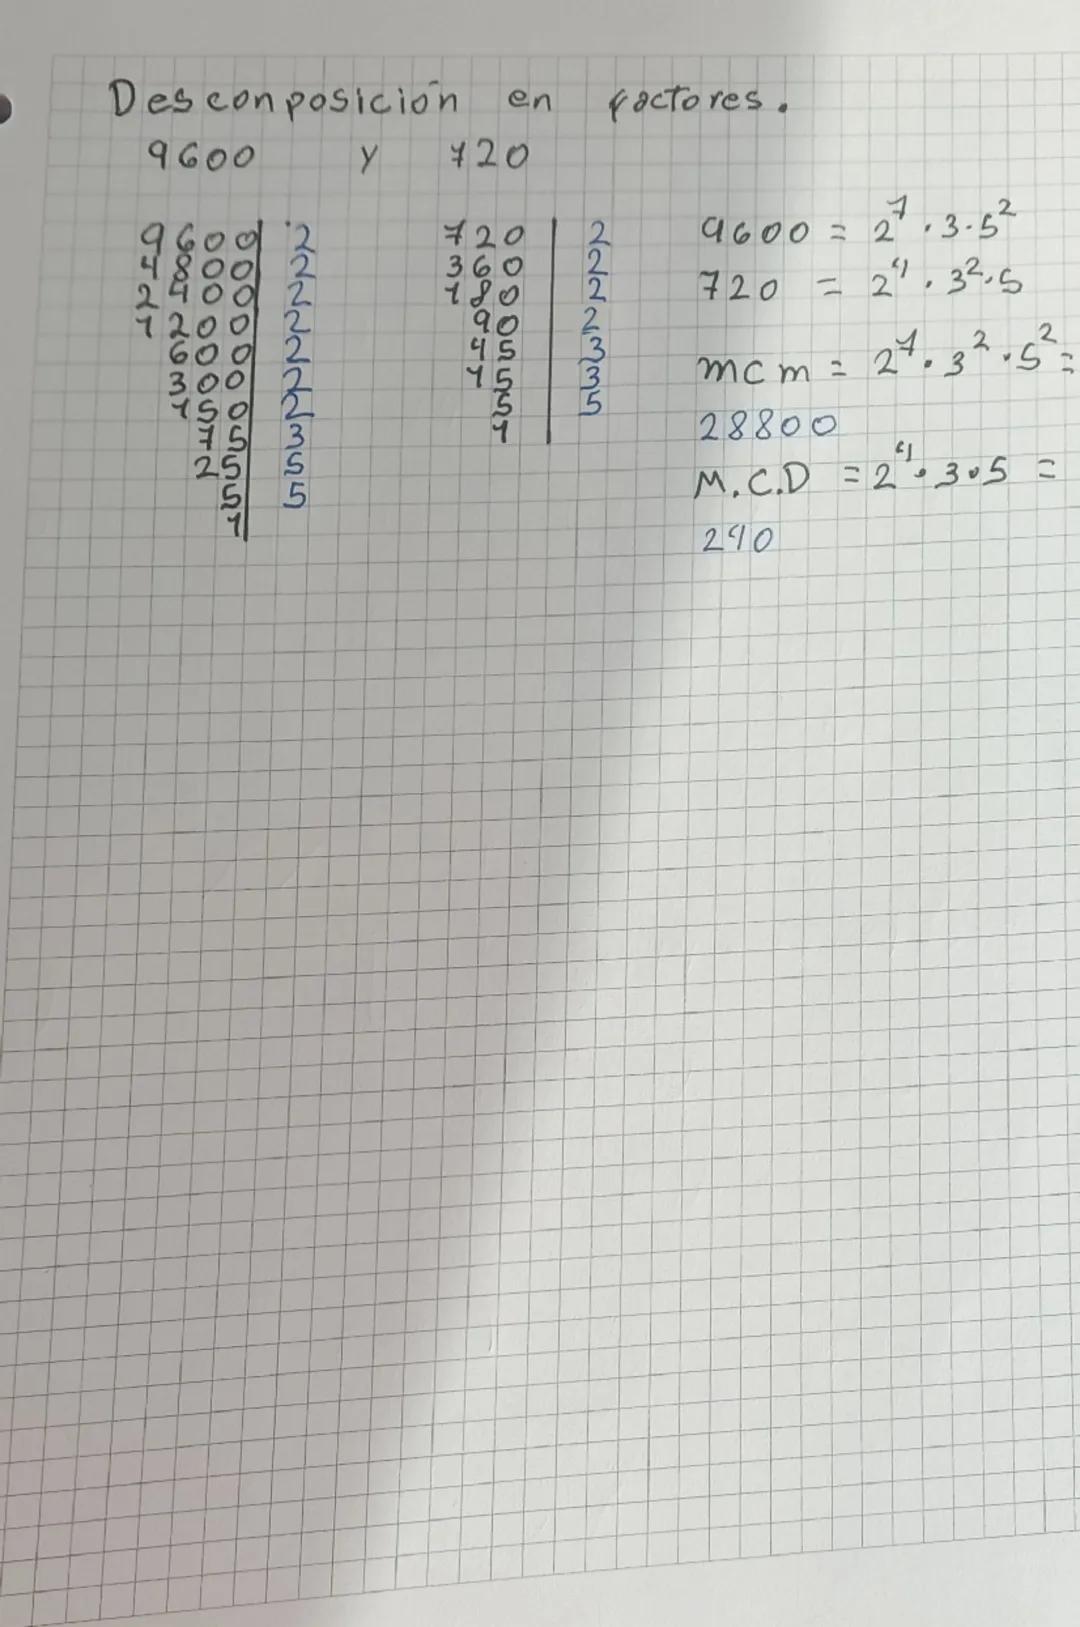 Desconposición en factores.
9600 y 720
9600 2
4800 2
2400 2
1200 2
600 2
300 2
150 2
75 3
25 5
5 5
1
720 2
360 2
180 2
90 2
45 3
15 3
5 5
1
9600 = 2⁷ · 3 · 5²
720 = 2⁴ · 3² · 5
mcm = 2⁷ · 3² · 5² =
28800
M.C.D = 2⁴ · 3 · 5 =
240